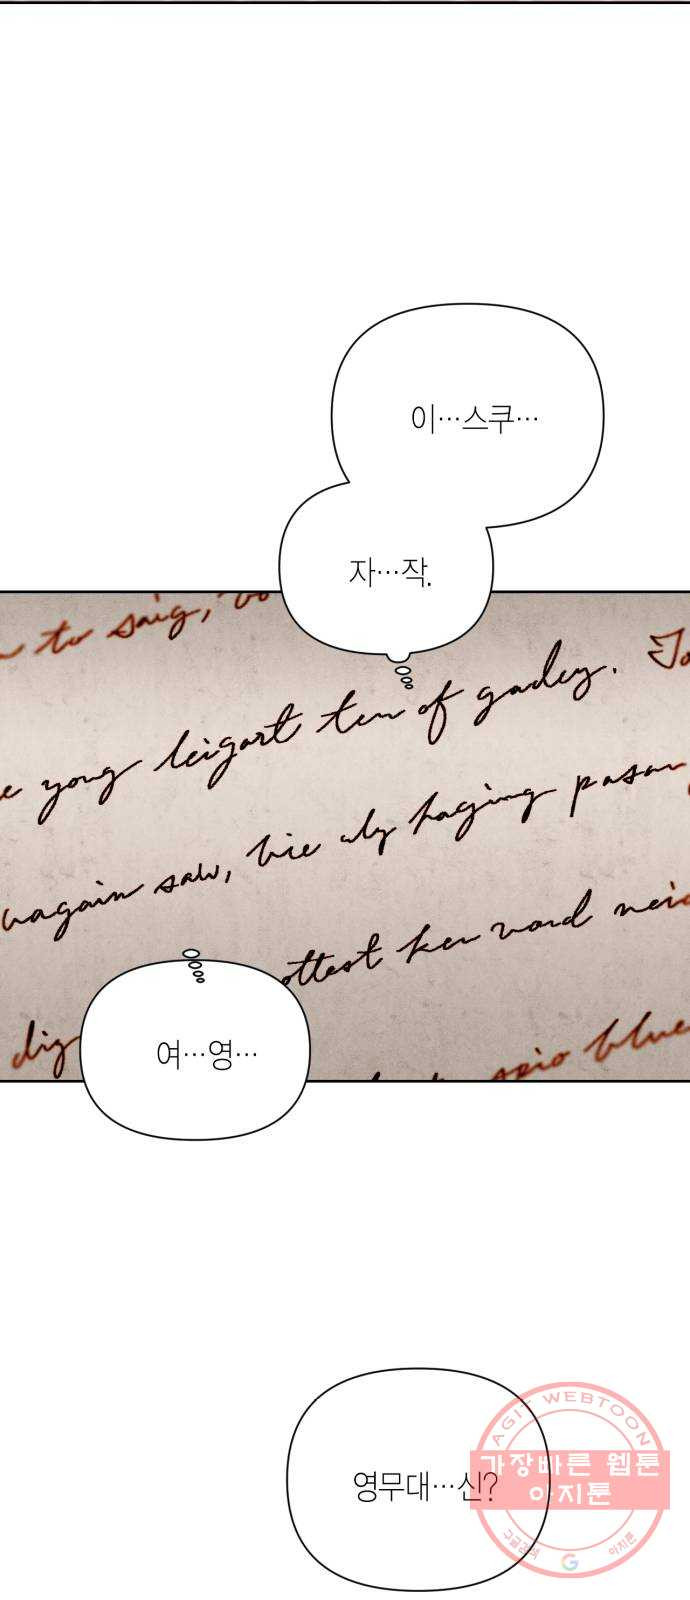 이…스쿠…
자…작.
to saig,
yong leigart ten of gadey.
vagain saw, hie uly haging pasan
ottest ken vard nei
dig
여…영…
seio blue
영무대…신?
AGIT WEBTOON
가장빠른 웹툰
아지툰
구글검색
G
아지툰